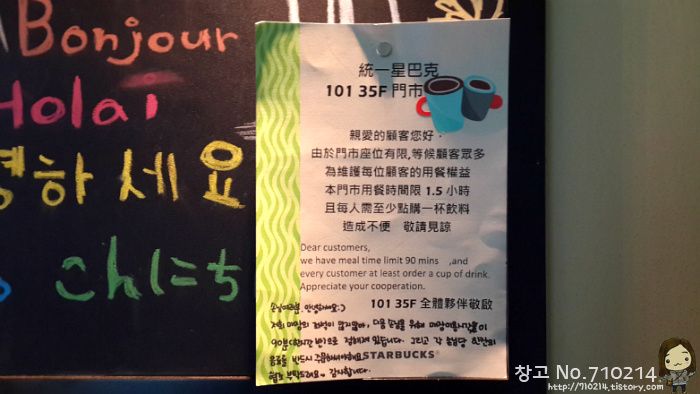 Bonjour
Hola
하세요
こんにち
統一星巴克
101 35F 門市
親愛的顧客您好，
由於門市座位有限,等候顧客眾多
為維護每位顧客的用餐權益
本門市用餐時間限 1.5 小時
且每人需至少點購一杯飲料
造成不便 敬請見諒
Dear customers,
we have meal time limit 90 mins ,and
every customer at least order a cup of drink.
Appreciate your cooperation.
101 35F 全體夥伴敬啟
손님여러분, 안녕하세요:)
저희 매장의 좌석이 많지않아, 다음 손님을 위해 매장이용시간을
90분(1시간 반)으로 정해져 있습니다. 그리고 각 손님당 한잔의
음료를 반드시 주문하셔야해요
STARBUCKS
부탁드려요~ 감사합니다.
창고 No.710214
http://710214.tistory.com/